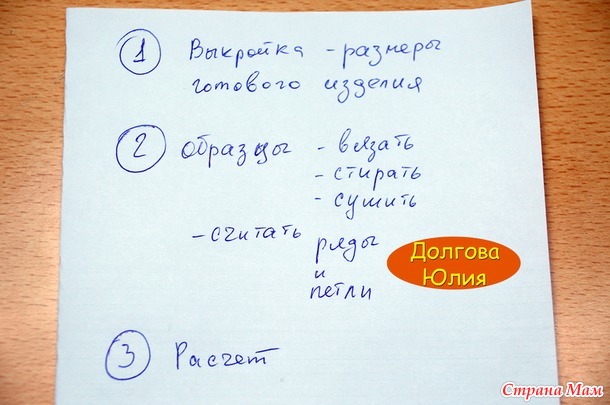 1 Выкройка - размеры
готового изделия
2 образцы - вязать
- стирать
- сушить
- считать ряды
и
петли
Долгова
Юлия
3 Расчет
Страна Мам